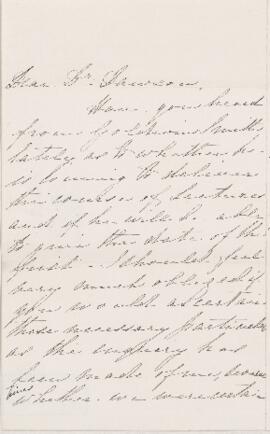 Dear Dr. Dawson,
Have you heard
from Goldwin Smith
lately as to whether he
is coming to deliver
the course of lectures
and if he will be able
to give the date of the
first - I should feel
very much obliged if
you would ascertain
these necessary particulars
as the enquiry has
been made of me, several
times whether we were certain